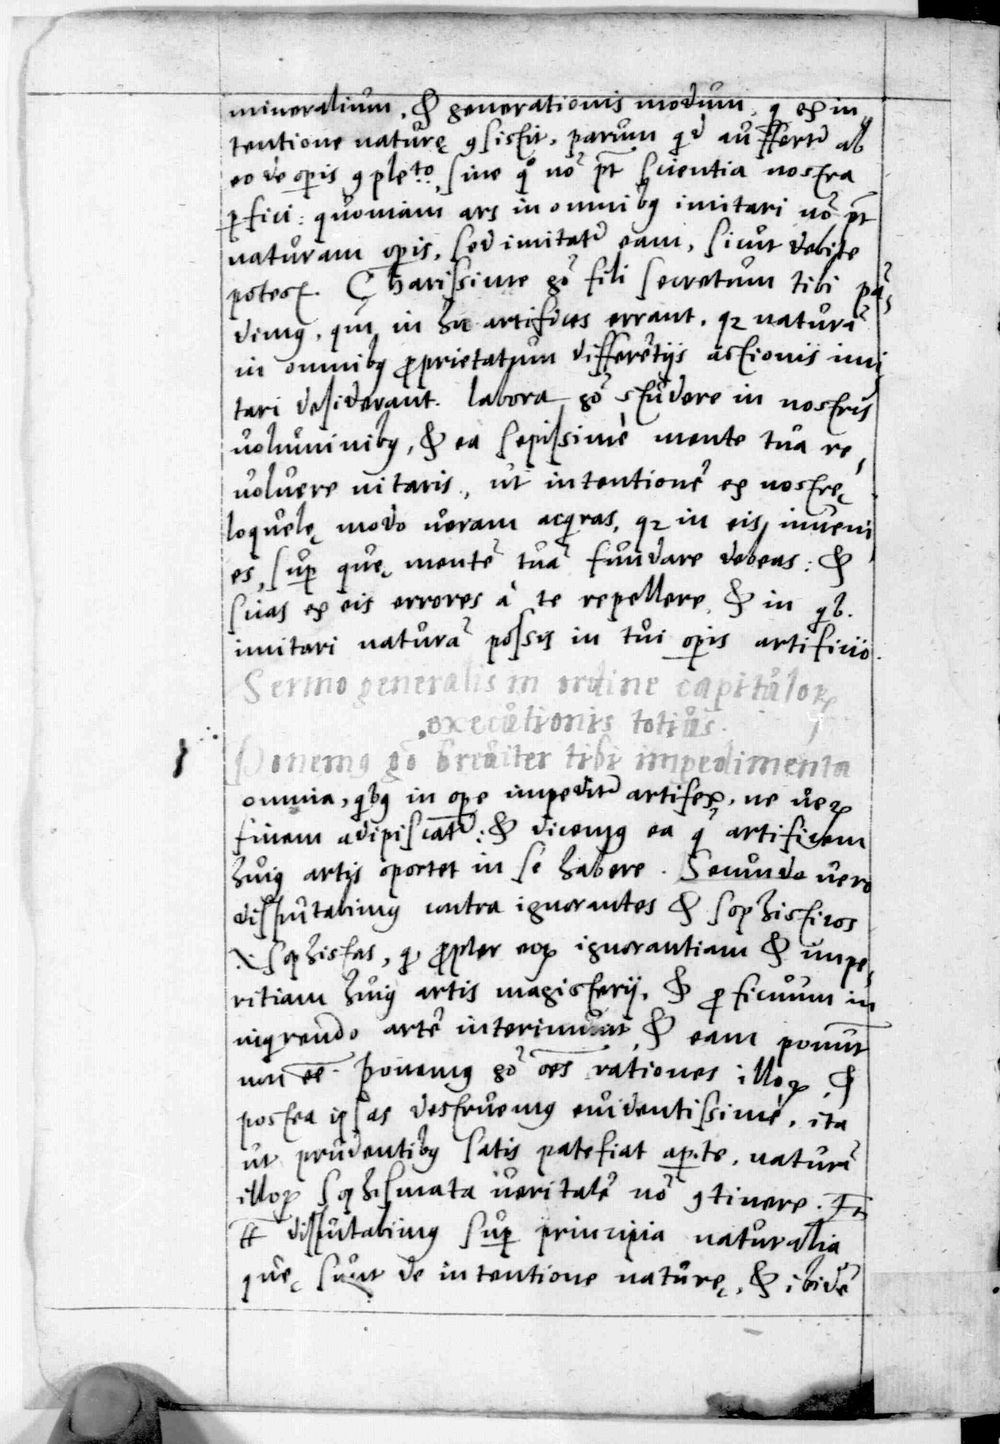 mineralium, & generationis modum, q ex in
tentione naturę 9sistit, parum qd auffert᷑ ab
eo de opis 9pleto, sine quo nō pt scientia nostra
pfici: quoniam ars in omnibꝯ imitari nō pt
naturam opis, sed imitat᷑ eam, sicut debite
potest. Charissime gō fili secretum tibi pā
dimꝯ, qm in hu artifices errant, qꝛ naturā
in omnibꝯ ꝓprietatum differētijs actionis imi
tari desiderant. labora gō studere in nostris
voluminibꝯ, & ea sepissimè mente tua re,
voluere nitaris, ut intentionē ex nostrę
loquelę modo veram acqras, qꝛ in eis inveni
es, sup quę mentē tuā fundare debeas: &
suas ex eis errores à te repellere, & in qb.
imitari naturā possis in tui opis artificio.
Sermo generalis in ordine capitulorꝝ
executionis totius.
Ponemꝯ gō breuiter tibi impedimenta
omnia, qbꝯ in ope impedit᷑ artifex, ne veꝝ
finem adipiscat᷑: & dicemꝯ ea q artificem
huiꝯ artis oportet in se habere. Secundo vero
disputabimꝯ contra ignorantes & sophisticos
sophistas, q ꝓpter eoꝝ ignorantiam & impe,
ritiam huiꝯ artis magisterij, & ꝓficuum in
inqrendo artē interimunt, & eam ponūt
non eē. Ponemꝯ gō oēs rationes illoꝝ, &
postea ipsas destruemꝯ euidentissimè, ita
ut prudentibꝯ satis patefiat apte, naturā
illoꝝ sophismata veritatē nō 9tinere.
disputabimꝯ sup principia naturalia
quę sunt de intentione naturę, & ibidē